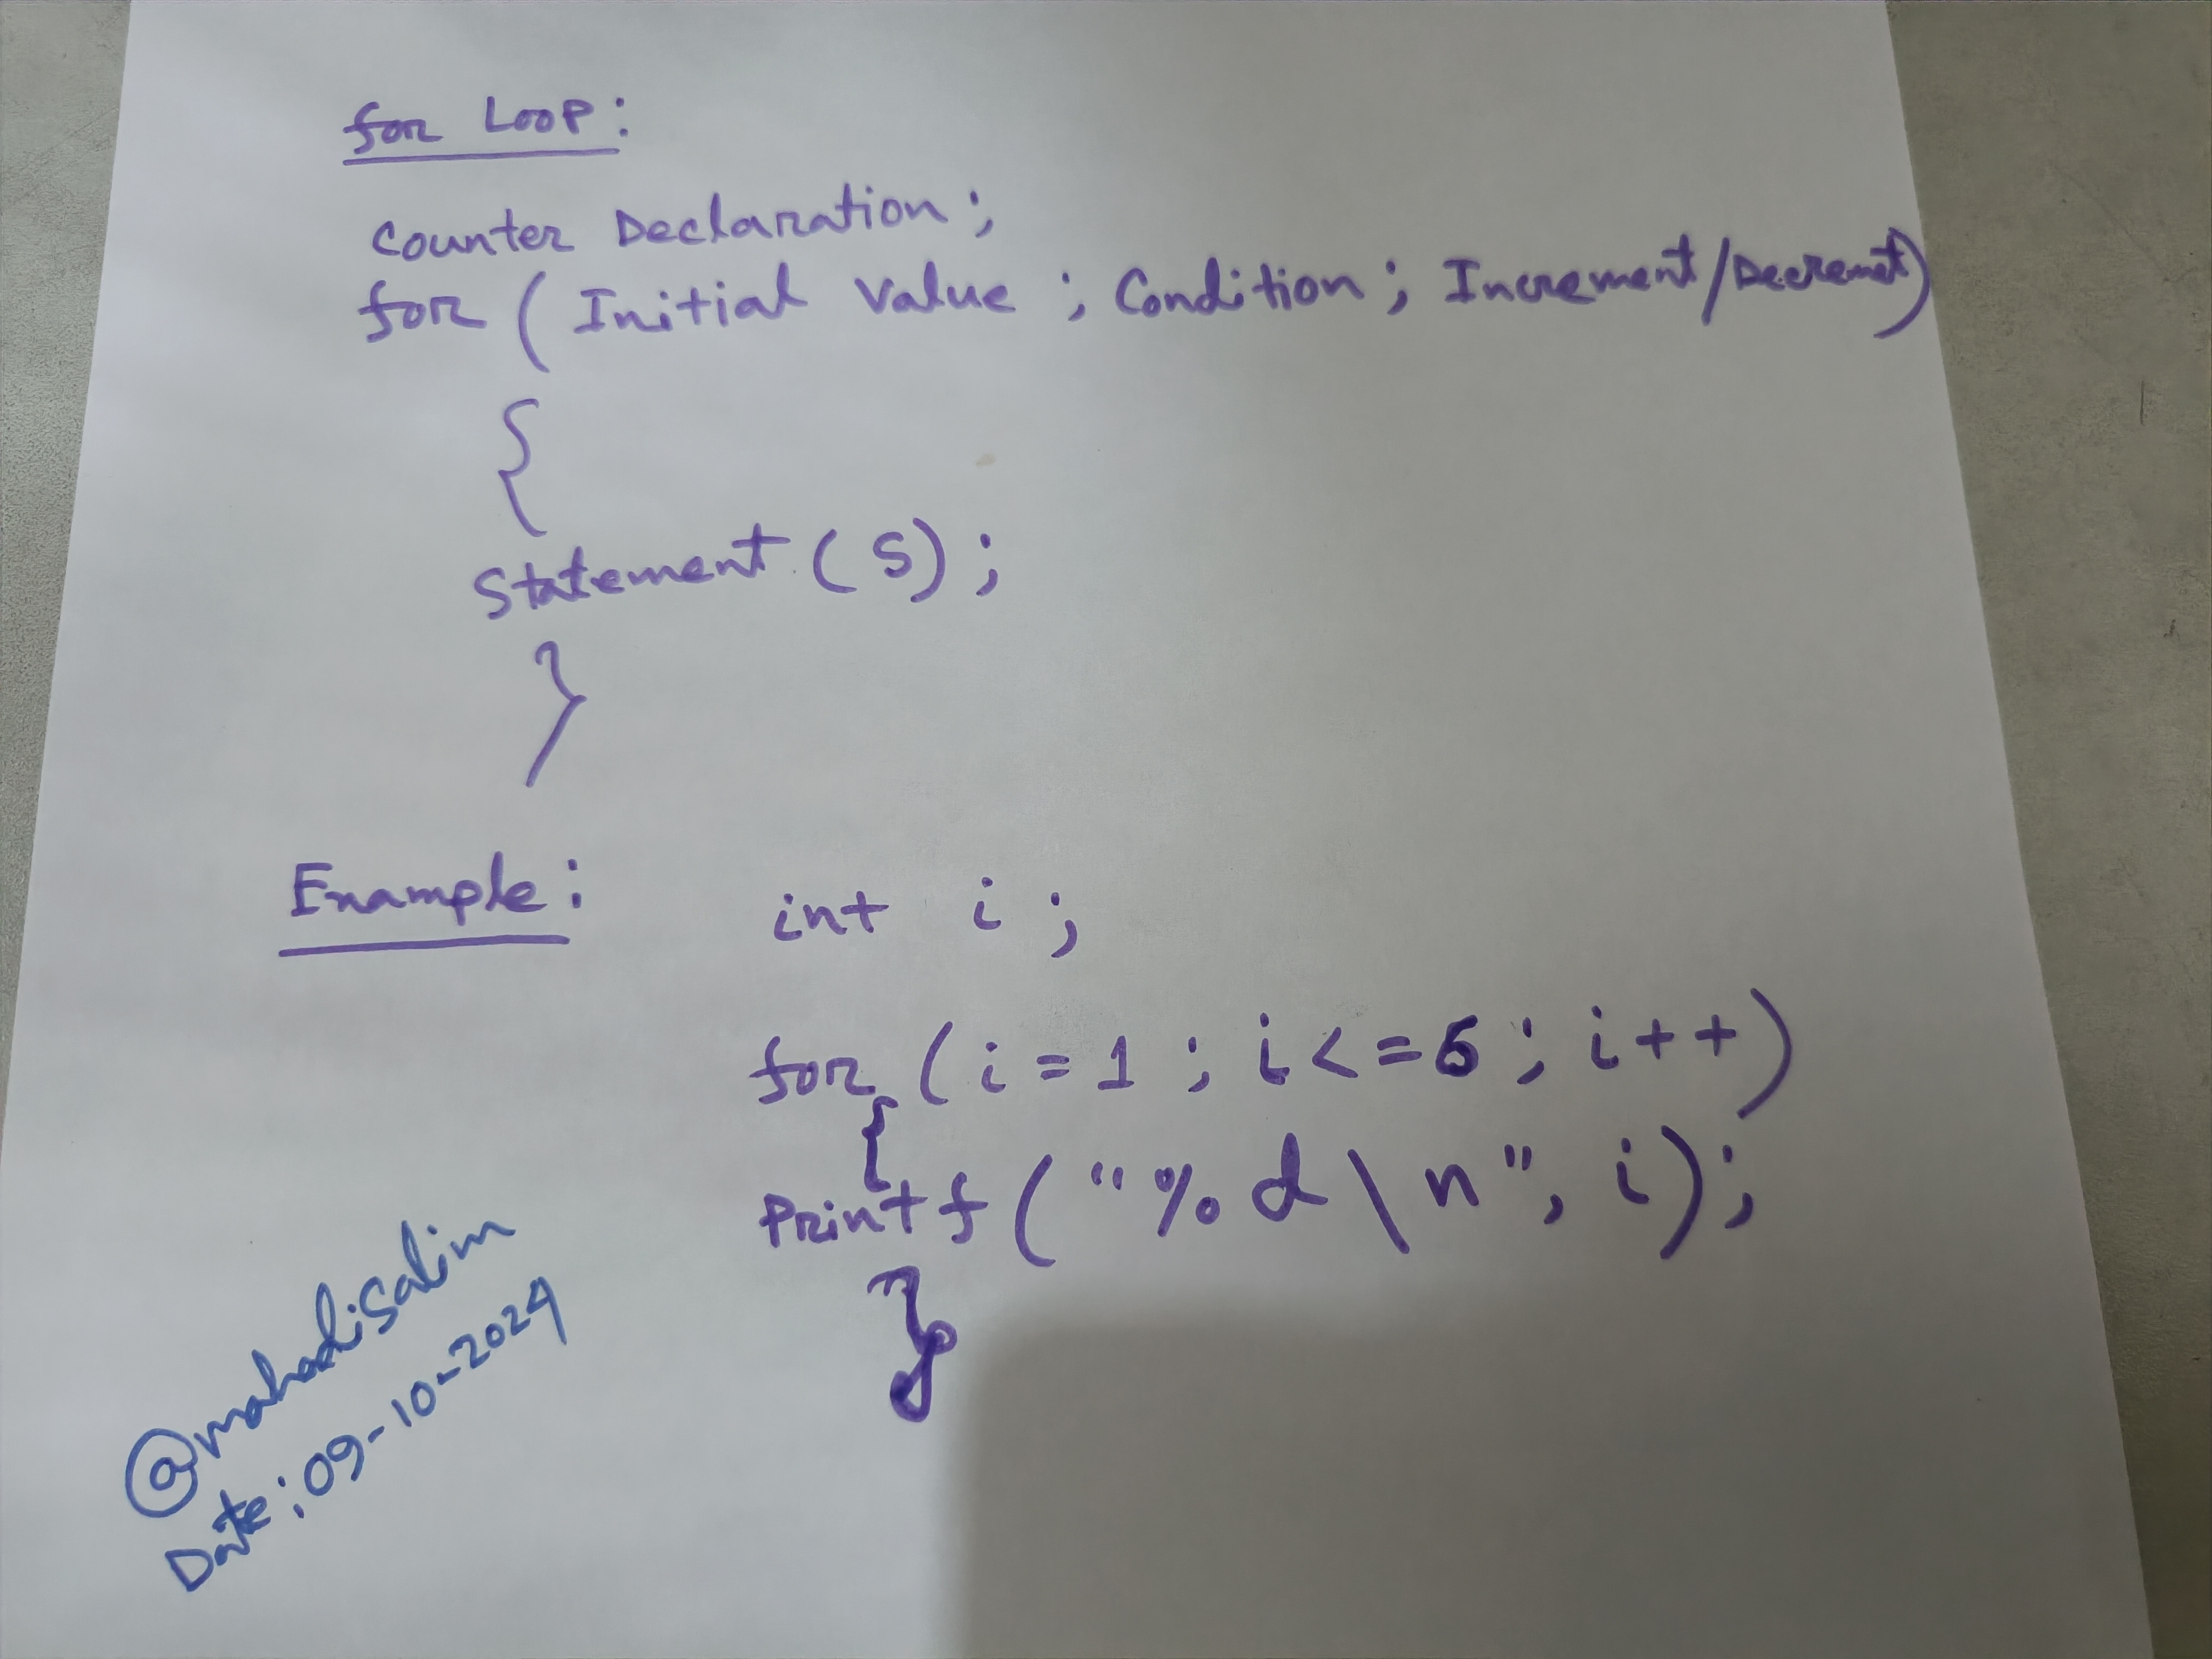 for Loop:
Counter Declaration;
for ( Initial Value ; Condition ; Increment/Decremet)
{
Statement (s);
}
Example:
int i ;
for ( i = 1 ; i <= 5 ; i++)
{
Printf ( "%d\n", i);
}
@mahadisalim
Date: 09-10-2024